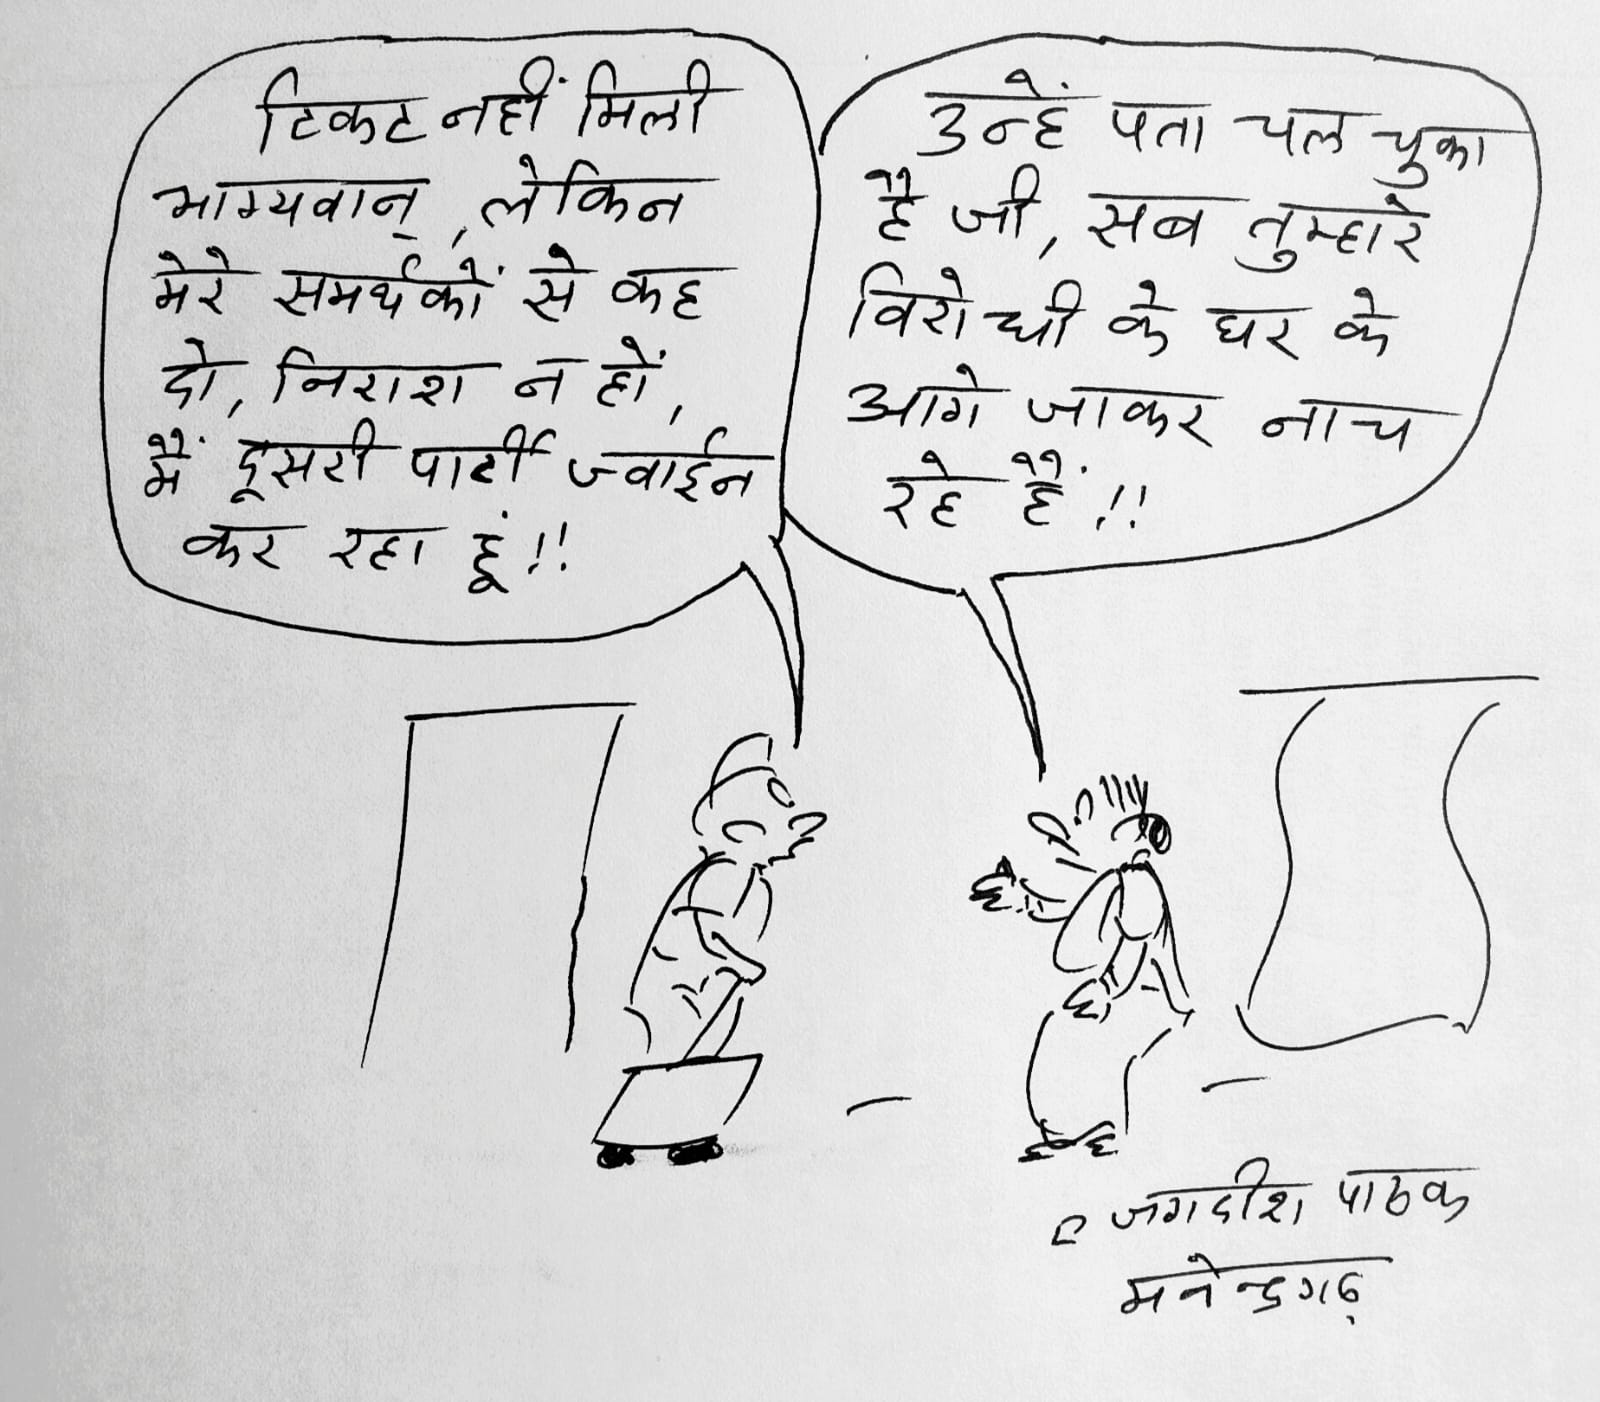 टिकट नहीं मिली
भाग्यवान्, लेकिन
मेरे समर्थकों से कह
दो, निराश न हों,
मैं दूसरी पार्टी ज्वाईन
कर रहा हूं!!
उन्हें पता चल चुका
है जी, सब तुम्हारे
विरोधी के घर के
आगे जाकर नाच
रहे हैं!!
जगदीश पाठक
मनेन्द्रगढ़